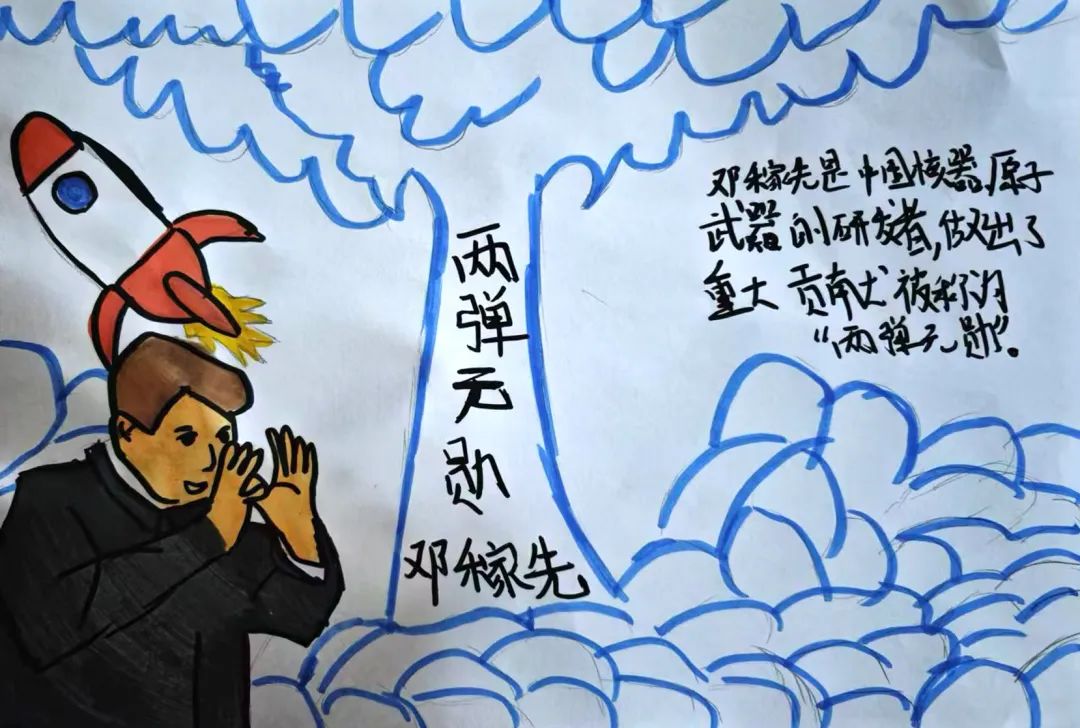 两弹无勋
邓稼先
邓稼先是中国核器,原子
武器的研发者,做出了
重大贡献被称为
“两弹无勋”。